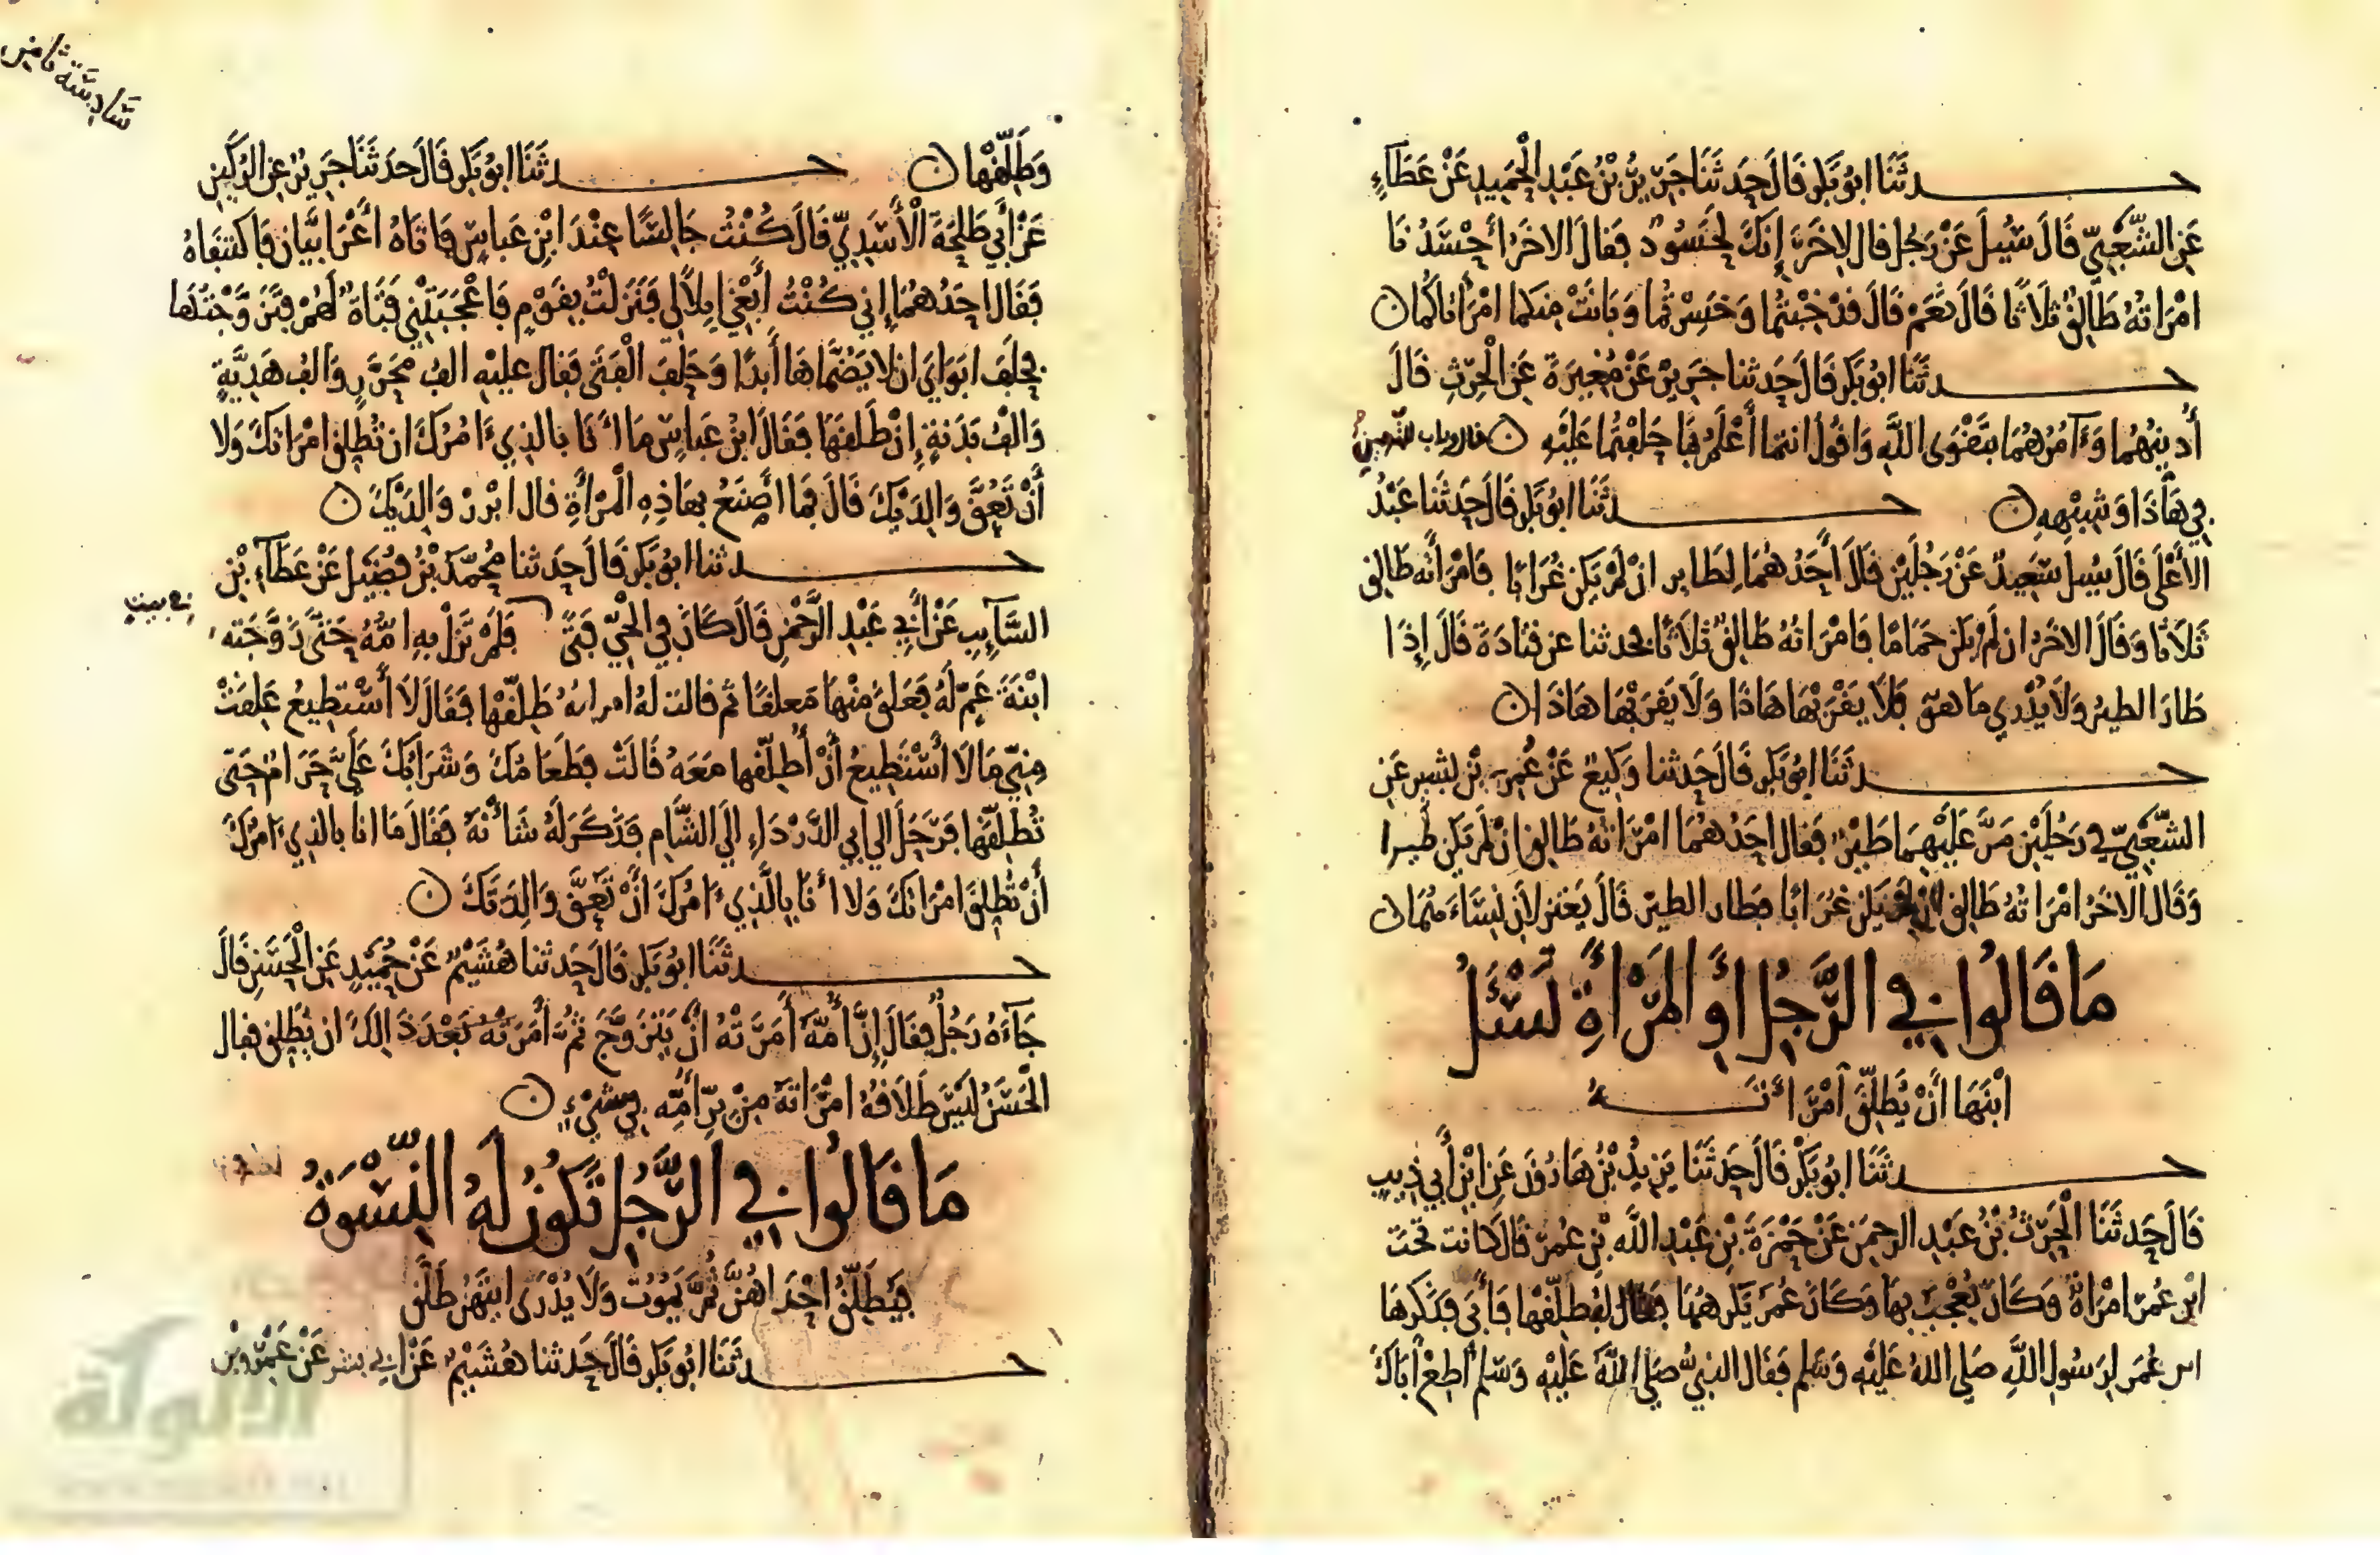 حدثنا ابو بكر قال حدثنا جرير بن عبد الحميد عن عطاء
عن الشعبي قال سئل عن رجل قال لاخر إنك لحسود فقال الاخر أحسدنا
امراته طالق ثلاثا قال نعم قال قد خبتما وخسرتما وبانت منكما امرأتاكما
حدثنا ابو بكر قال حدثنا جرير عن مغيرة عن الحرث قال
أدينهما وءآمرهما بتقوى الله واقول انتما أعلم بما حلفتما عليه
في هاذا وشبهه حدثنا ابو بكر قال حدثنا عبد
الأعلى قال سئل سعيد عن رجلين قال أحدهما لطاير ان لم يكن غرابا فامرأته طالق
ثلاثا وقال الاخر ان لم يكن حماما فامراته طالق ثلاثا فحدثنا عن قتادة قال إذا
طار الطير ولا يدري ما هو فلا يقربها هاذا ولا يقربها هاذا
حدثنا ابو بكر قال حدثنا وكيع عن عمر بن بشير عن
الشعبي في رجلين مر عليهما طير فقال احدهما امراته طالق ان لم يكن طيرا
وقال الاخر امراته طالق ان لم يكن غرابا فطار الطير قال يعتزلان نساءهما
ما قالوا في الرجل أو المرأة تسئل
ابنها أن يطلق امرأته
حدثنا ابو بكر قال حدثنا يزيد بن هارون عن ابن أبي ذيب
قال حدثنا الحرث بن عبد الرحمن عن حمزة بن عبد الله بن عمر قال كانت تحت
ابن عمر امرأة وكان يعجب بها وكان عمر يكرهها فقال له طلقها فأبى فذكرها
ابن عمر لرسول الله صلى الله عليه وسلم فقال النبي صلى الله عليه وسلم أطع أباك
وطلقها حدثنا ابو بكر قال حدثنا جرير عن الركين
عن أبي طلحة الأسدي قال كنت جالسا عند ابن عباس فاتاه أعرابيان فاكتنفاه
فقال احدهما إني كنت أبغي إبلا لي فنزلت بقوم فاعجبتني فتاة لهم فتزوجتها
فحلف ابواي ان لا يضماها أبدا وحلف الفتى فقال عليه الف محرر والف هدية
والف بدنة إن طلقها فقال ابن عباس ما أنا بالذي ءامرك ان تطلق امراتك ولا
أن تعق والديك قال فما أصنع بهاذه المرأة قال ابرر والديك
حدثنا ابو بكر قال حدثنا محمد بن فضيل عن عطاء بن
السآيب عن أبي عبد الرحمن قال كان في الحي فتى فلم تزل به امه حتى زوجته
في بيت
ابنة عم له فعلق منها معلقا ثم قالت له امراته طلقها فقال لا أستطيع علقت
مني ما لا أستطيع أن أطلقها معه قالت فطعامك وشرابك علي حرام حتى
تطلقها فرحل الى ابي الدرداء إلى الشام فذكر له شأنه فقال ما انا بالذي ءامرك
أن تطلق امراتك ولا أنا بالذي ءامرك أن تعق والدتك
حدثنا ابو بكر قال حدثنا هشيم عن حميد عن الحسن قال
جآءه رجل فقال إن أمه أمرته ان يتزوج ثم أمرته بعد ذالك ان يطلق فقال
الحسن ليس طلاقه امراته من بر أمه في شيء
ما قالوا في الرجل تكون له النسوة
فيطلق احداهن ثم يموت ولا يدرى ايتهن طلق
حدثنا ابو بكر قال حدثنا هشيم عن ابي بشر عن عمرو بن
الألوكة